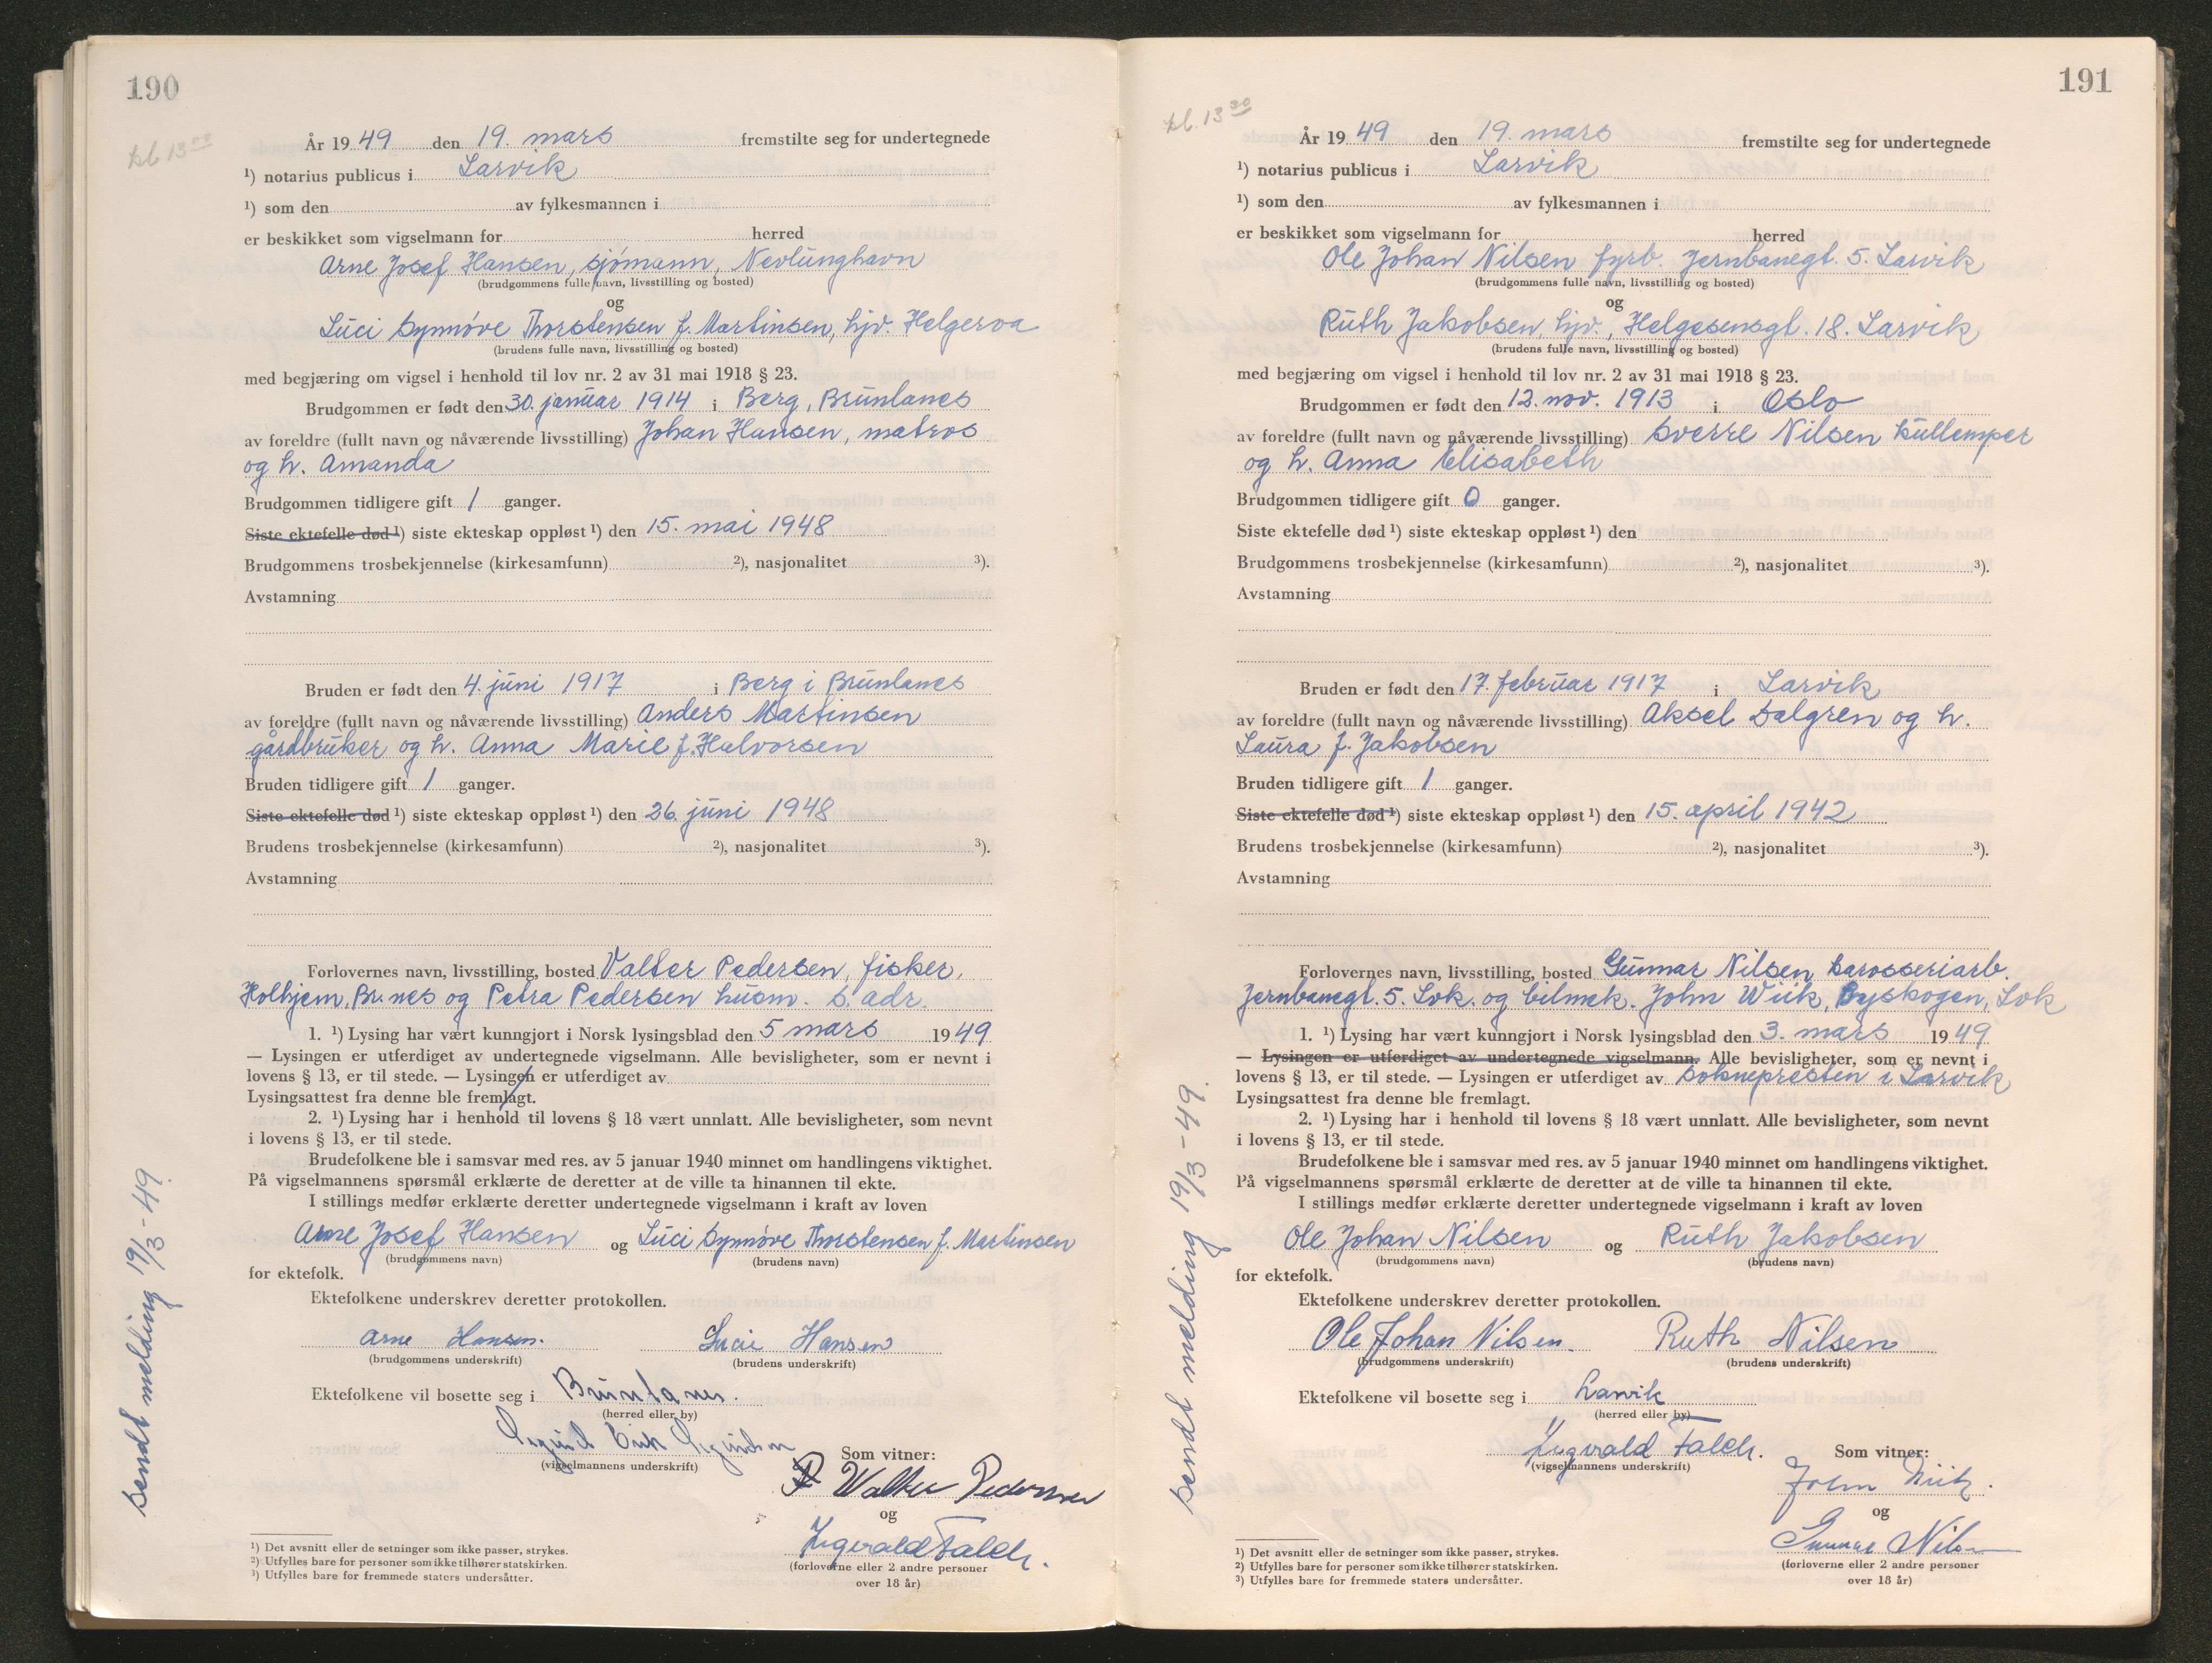 190
kl 13⁰⁰
År 1949 den 19. mars fremstilte seg for undertegnede
¹) notarius publicus i Larvik
¹) som den av fylkesmannen i
er beskikket som vigselmann for herred
Arne Josef Hansen, sjómann, Nevlunghavn
(brudgommens fulle navn, livsstilling og bosted)
og
Luci Synnóve Thorstensen f. Martinsen, hjv. Helgeroa
(brudens fulle navn, livsstilling og bosted)
med begjæring om vigsel i henhold til lov nr. 2 av 31 mai 1918 § 23.
Brudgommen er født den 30. januar 1914 i Berg, Brunlanes
av foreldre (fullt navn og nåværende livsstilling) Johan Hansen, matros
og h. Amanda
Brudgommen tidligere gift 1 ganger.
Siste ektefelle død ¹) siste ekteskap oppløst ¹) den 15. mai 1948
Brudgommens trosbekjennelse (kirkesamfunn) ²), nasjonalitet ³).
Avstamning
Bruden er født den 4. juni 1917 i Berg i Brunlanes
av foreldre (fullt navn og nåværende livsstilling) Anders Martinsen
gårdbruker og h. Anna Marie f. Halvorsen
Bruden tidligere gift 1 ganger.
Siste ektefelle død ¹) siste ekteskap oppløst ¹) den 26. juni 1948
Brudens trosbekjennelse (kirkesamfunn) ²), nasjonalitet ³).
Avstamning
Forlovernes navn, livsstilling, bosted Valter Pedersen, fisker,
Holhjem, Br.nes og Petra Pedersen husm. s. adr.
1. ¹) Lysing har vært kunngjort i Norsk lysingsblad den 5 mars 1949
— Lysingen er utferdiget av undertegnede vigselmann. Alle bevisligheter, som er nevnt i
lovens § 13, er til stede. — Lysingen er utferdiget av
Lysingsattest fra denne ble fremlagt.
2. ¹) Lysing har i henhold til lovens § 18 vært unnlatt. Alle bevisligheter, som nevnt
i lovens § 13, er til stede.
Brudefolkene ble i samsvar med res. av 5 januar 1940 minnet om handlingens viktighet.
På vigselmannens spørsmål erklærte de deretter at de ville ta hinannen til ekte.
I stillings medfør erklærte deretter undertegnede vigselmann i kraft av loven
Arne Josef Hansen og Luci Synnóve Thorstensen f. Martinsen
(brudgommens navn) (brudens navn)
for ektefolk.
Ektefolkene underskrev deretter protokollen.
Arne Hansen. Lucie Hansen
(brudgommens underskrift) (brudens underskrift)
Ektefolkene vil bosette seg i Brunlanes.
(herred eller by)
(vigselmannens underskrift) Som vitner:
Walter Pedersen
og
Ingvald Falch.
(forloverne eller 2 andre personer
over 18 år)
sendt melding 19/3-49.
¹) Det avsnitt eller de setninger som ikke passer, strykes.
²) Utfylles bare for personer som ikke tilhører statskirken.
³) Utfylles bare for fremmede staters undersåtter.
191
kl. 13³⁰
År 1949 den 19. mars fremstilte seg for undertegnede
¹) notarius publicus i Larvik
¹) som den av fylkesmannen i
er beskikket som vigselmann for herred
Ole Johan Nilsen fyrb. Jernbanegt. 5. Larvik
(brudgommens fulle navn, livsstilling og bosted)
og
Ruth Jakobsen, hjv., Helgesensgt. 18. Larvik
(brudens fulle navn, livsstilling og bosted)
med begjæring om vigsel i henhold til lov nr. 2 av 31 mai 1918 § 23.
Brudgommen er født den 12. nov. 1913 i Oslo
av foreldre (fullt navn og nåværende livsstilling) Sverre Nilsen kullemper
og h. Anna Elisabeth
Brudgommen tidligere gift 0 ganger.
Siste ektefelle død ¹) siste ekteskap oppløst ¹) den
Brudgommens trosbekjennelse (kirkesamfunn) ²), nasjonalitet ³).
Avstamning
Bruden er født den 17. februar 1917 i Larvik
av foreldre (fullt navn og nåværende livsstilling) Aksel Dalgren og h.
Laura f. Jakobsen
Bruden tidligere gift 1 ganger.
Siste ektefelle død ¹) siste ekteskap oppløst ¹) den 15. april 1942
Brudens trosbekjennelse (kirkesamfunn) ²), nasjonalitet ³).
Avstamning
Forlovernes navn, livsstilling, bosted Gunnar Nilsen karosseriarb.
Jernbanegt. 5. Lvk. og bilmek. John Wiik, Byskogen, Lvk
1. ¹) Lysing har vært kunngjort i Norsk lysingsblad den 3. mars 1949
— Lysingen er utferdiget av undertegnede vigselmann. Alle bevisligheter, som er nevnt i
lovens § 13, er til stede. — Lysingen er utferdiget av soknepresten i Larvik
Lysingsattest fra denne ble fremlagt.
2. ¹) Lysing har i henhold til lovens § 18 vært unnlatt. Alle bevisligheter, som nevnt
i lovens § 13, er til stede.
Brudefolkene ble i samsvar med res. av 5 januar 1940 minnet om handlingens viktighet.
På vigselmannens spørsmål erklærte de deretter at de ville ta hinannen til ekte.
I stillings medfør erklærte deretter undertegnede vigselmann i kraft av loven
Ole Johan Nilsen og Ruth Jakobsen
(brudgommens navn) (brudens navn)
for ektefolk.
Ektefolkene underskrev deretter protokollen.
Ole Johan Nilsen. Ruth Nilsen
(brudgommens underskrift) (brudens underskrift)
Ektefolkene vil bosette seg i Larvik
(herred eller by)
Ingvald Falch.
(vigselmannens underskrift) Som vitner:
John Wiik.
og
Gunnar Nilsen
(forloverne eller 2 andre personer
over 18 år)
sendt melding 19/3-49.
¹) Det avsnitt eller de setninger som ikke passer, strykes.
²) Utfylles bare for personer som ikke tilhører statskirken.
³) Utfylles bare for fremmede staters undersåtter.